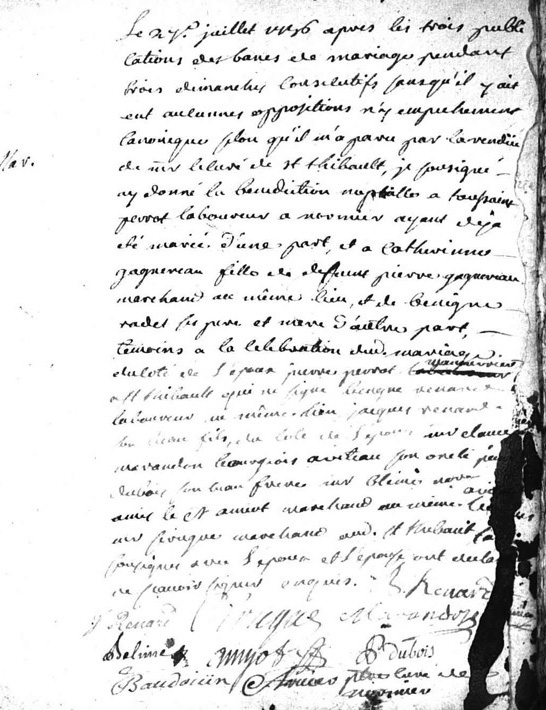 Le 27e juillet 1756 apres les trois publi
cations des bancs de mariage pendant
trois dimanches consecutifs sansqu'il y ait
eut aucunnes oppositions n'y empechement
canonique selon qu'il m'a paru par la
de mr le curé de st thibault, je sousigné
ay donné la benediction nuptialle a toussaint
perrot laboureur a normier ayant deja
eté marié d'une part, et a Catherinne
gagnereau fille de defunt pierre gagnereau
marchand au même lieu, et de benigne
radet ses pere et mere d'autre part,
temoins a la celebration dud. mariage
du coté de l'epoux pierre perrot manouvrier
a st thibault qui ne signe benigne renard
laboureur au même lieu jacques renard
son beau fils, du coté de l'epouse mr claude
marandon bourgeois a son oncle
dubois son beau frere mr
amis le st amiot marchand au même lieu
mr marchand aud. st thibault
sousignés avec l'epoux et l'epouse ont declaré
ne scavoir signer enquis. B. Renard
J Renard Marandon
Belime amyot P dubois
Baudouin curé de
normier